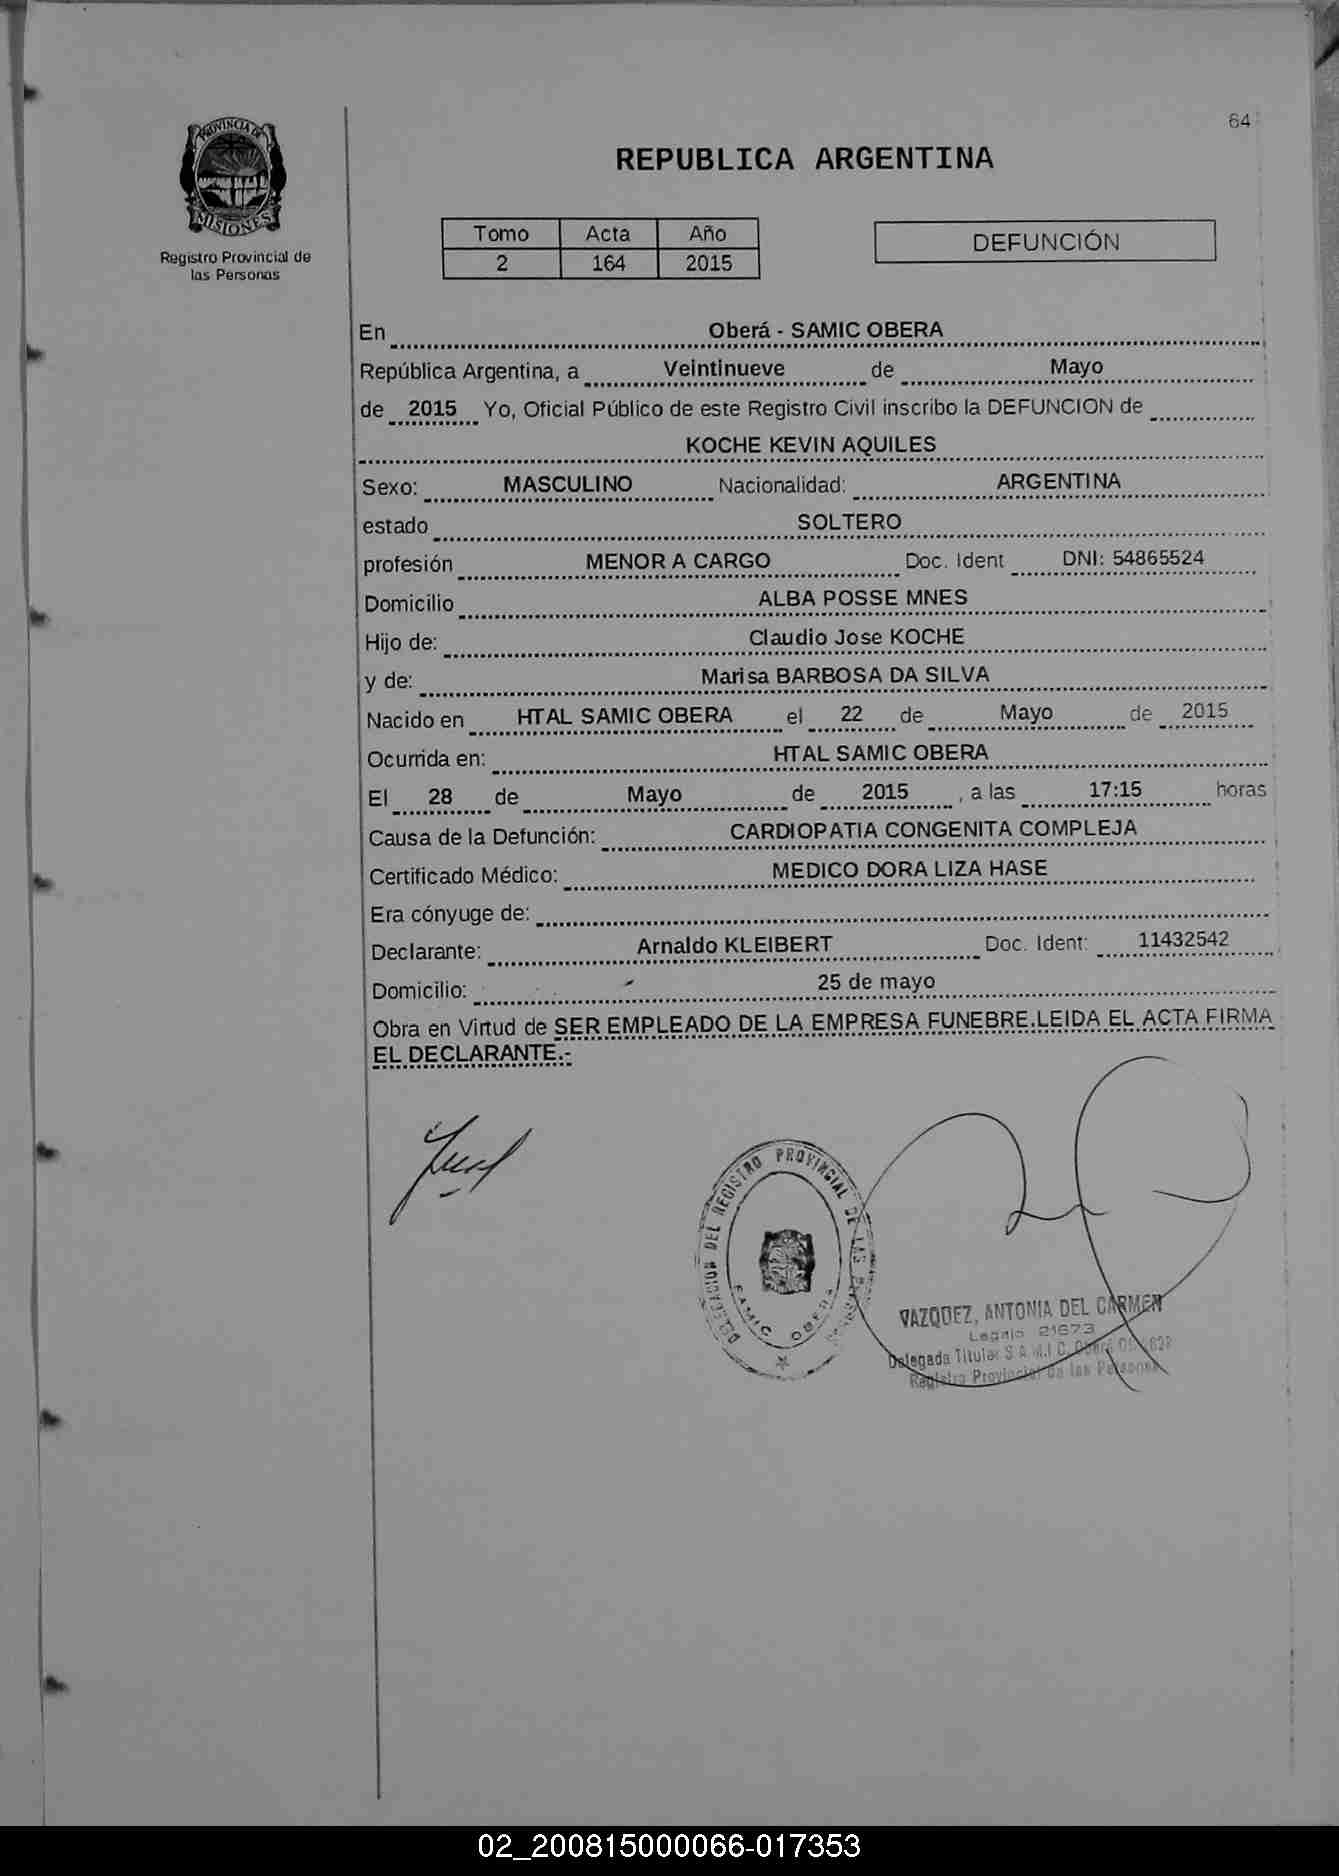 64
PROVINCIA DE
MISIONES
Registro Provincial de
las Personas
REPUBLICA ARGENTINA
Tomo Acta Año
2 164 2015
DEFUNCIÓN
En Oberá - SAMIC OBERA
República Argentina, a Veintinueve de Mayo
de 2015 Yo, Oficial Público de este Registro Civil inscribo la DEFUNCION de
KOCHE KEVIN AQUILES
Sexo: MASCULINO Nacionalidad: ARGENTINA
estado SOLTERO
profesión MENOR A CARGO Doc. Ident DNI: 54865524
Domicilio ALBA POSSE MNES
Hijo de: Claudio Jose KOCHE
y de: Marisa BARBOSA DA SILVA
Nacido en HTAL SAMIC OBERA el 22 de Mayo de 2015
Ocurrida en: HTAL SAMIC OBERA
El 28 de Mayo de 2015 , a las 17:15 horas
Causa de la Defunción: CARDIOPATIA CONGENITA COMPLEJA
Certificado Médico: MEDICO DORA LIZA HASE
Era cónyuge de:
Declarante: Arnaldo KLEIBERT Doc. Ident: 11432542
Domicilio: 25 de mayo
Obra en Virtud de SER EMPLEADO DE LA EMPRESA FUNEBRE.LEIDA EL ACTA FIRMA
EL DECLARANTE.-
DELEGACION DEL REGISTRO PROVINCIAL DE LAS
SAMIC OBERA
VAZQUEZ, ANTONIA DEL CARMEN
Legajo 21673
Delegada Titular S.A.M.I.C. Oberá
Registro Provincial de las Personas
02_200815000066-017353